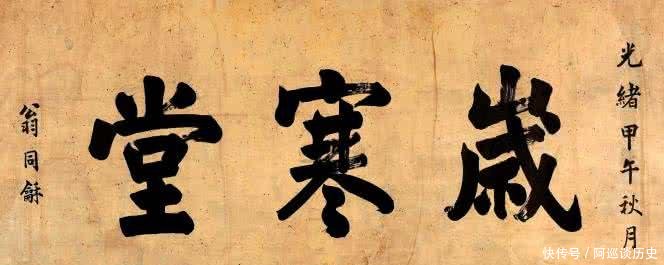 光緒甲午秋月
歲寒堂
翁同龢
快传号 / 阿巡谈历史